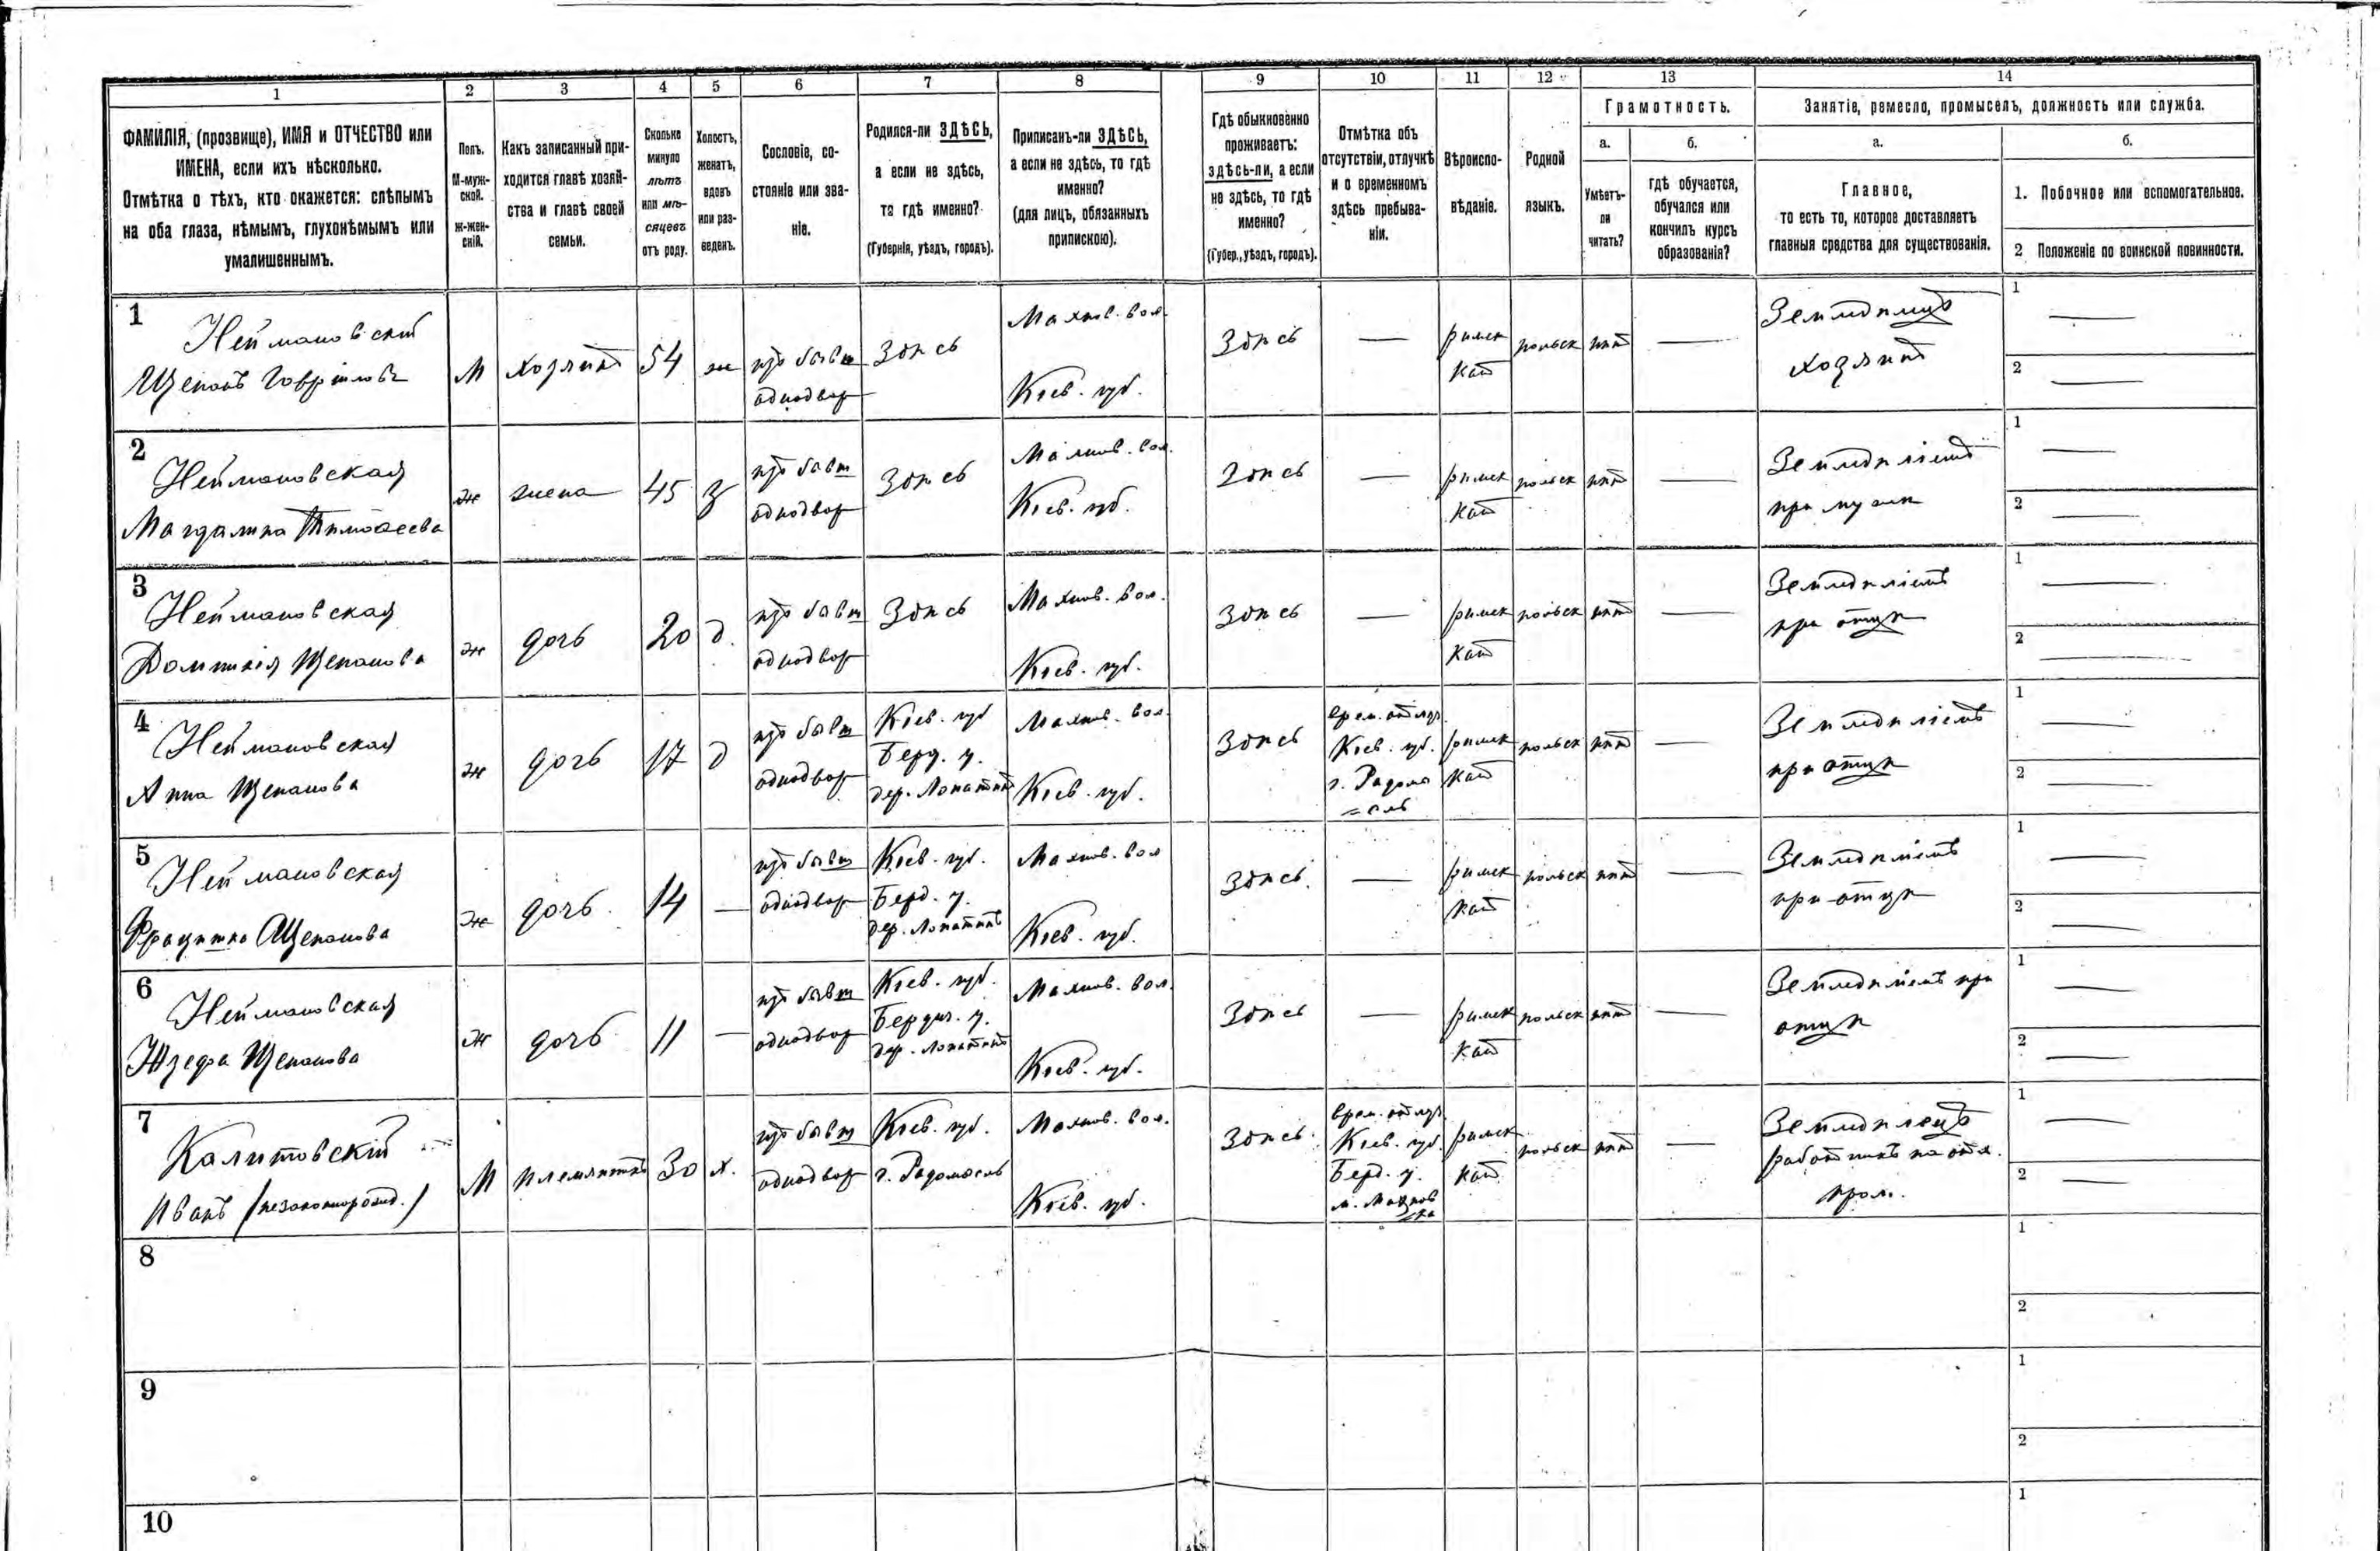 1 2 3 4 5 6 7 8 9 10 11 12 13 14
ФАМИЛІЯ, (прозвище), ИМЯ и ОТЧЕСТВО или
ИМЕНА, если ихъ нѣсколько.
Отмѣтка о тѣхъ, кто окажется: слѣпымъ
на оба глаза, нѣмымъ, глухонѣмымъ или
умалишеннымъ.
Полъ.
М-муж-
ской.
ж-жен-
скій.
Какъ записанный при-
ходится главѣ хозяй-
ства и главѣ своей
семьи.
Сколько
минуло
лѣтъ
или мѣ-
сяцевъ
отъ роду.
Холостъ,
женатъ,
вдовъ
или раз-
веденъ.
Сословіе, со-
стояніе или зва-
ніе.
Родился-ли ЗДѢСЬ,
а если не здѣсь,
то гдѣ именно?
(Губернія, уѣздъ, городъ).
Приписанъ-ли ЗДѢСЬ,
а если не здѣсь, то гдѣ
именно?
(для лицъ, обязанныхъ
припискою).
Гдѣ обыкновенно
проживаетъ:
здѣсь-ли, а если
не здѣсь, то гдѣ
именно?
(Губер., уѣздъ, городъ).
Отмѣтка объ
отсутствіи, отлучкѣ
и о временномъ
здѣсь пребыва-
ніи.
Вѣроиспо-
вѣданіе.
Родной
языкъ.
Грамотность.
а.
Умѣетъ-
ли
читать?
б.
Гдѣ обучается,
обучался или
кончилъ курсъ
образованія?
Занятіе, ремесло, промыселъ, должность или служба.
а.
Главное,
то есть то, которое доставляетъ
главныя средства для существованія.
б.
1. Побочное или вспомогательное.
2 Положеніе по воинской повинности.
1
Неймановскій
Щепанъ Гаврилов
М
хозяинъ
54
ж
изъ бывш
однодвор
Здѣсь
Махнов. вол.
Кіев. губ.
Здѣсь
—
римск
кат
польск
нѣтъ
—
Земледѣлецъ
хозяинъ
1 —
2 —
2
Неймановская
Магдалина Тимофеева
ж
жена
45
З
изъ бывш
однодвор
Здѣсь
Махнов. вол.
Кіев. губ.
Здѣсь
—
римск
кат
польск
нѣтъ
—
Земледѣліемъ
при мужѣ
1 —
2 —
3
Неймановская
Доминикія Щепанова
ж
дочь
20
д.
изъ бывш
однодвор
Здѣсь
Махнов. вол.
Кіев. губ.
Здѣсь
—
римск
кат
польск
нѣтъ
—
Земледѣліемъ
при отцѣ
1 —
2 —
4
Неймановская
Анна Щепанова
ж
дочь
17
д
изъ бывш
однодвор
Кіев. губ
Берд. у.
дер. Лопатинъ
Махнов. вол.
Кіев. губ.
Здѣсь
врем. отлуч.
Кіев. губ.
г. Радомы
=сль
римск
кат
польск
нѣтъ
—
Земледѣліемъ
при отцѣ
1 —
2 —
5
Неймановская
Францишка Щепанова
ж
дочь
14
—
изъ бывш
однодвор
Кіев. губ.
Берд. у.
дер. Лопатинъ
Махнов. вол
Кіев. губ.
Здѣсь.
—
римск
кат
польск
нѣтъ
—
Земледѣліемъ
при отцѣ
1 —
2 —
6
Неймановская
Юзефа Щепанова
ж
дочь
11
—
изъ бывш
однодвор
Кіев. губ.
Бердич. у.
дер. Лопатинъ
Махнов. вол.
Кіев. губ.
Здѣсь
—
римск
кат
польск
нѣтъ
—
Земледѣліемъ при
отцѣ
1 —
2 —
7
Калитовскій
Иванъ (незаконнорожд.)
М
племянникъ
30
х.
изъ бывш
однодвор
Кіев. губ.
г. Радомысль
Махнов. вол.
Кіев. губ.
Здѣсь
врем. отлуч.
Кіев. губ.
Берд. у.
м. Махнов
ка
римск
кат
польск
нѣтъ
—
Земледѣлецъ
работникъ на отх.
пром.
1 —
2 —
8
1
2
9
1
2
10
1